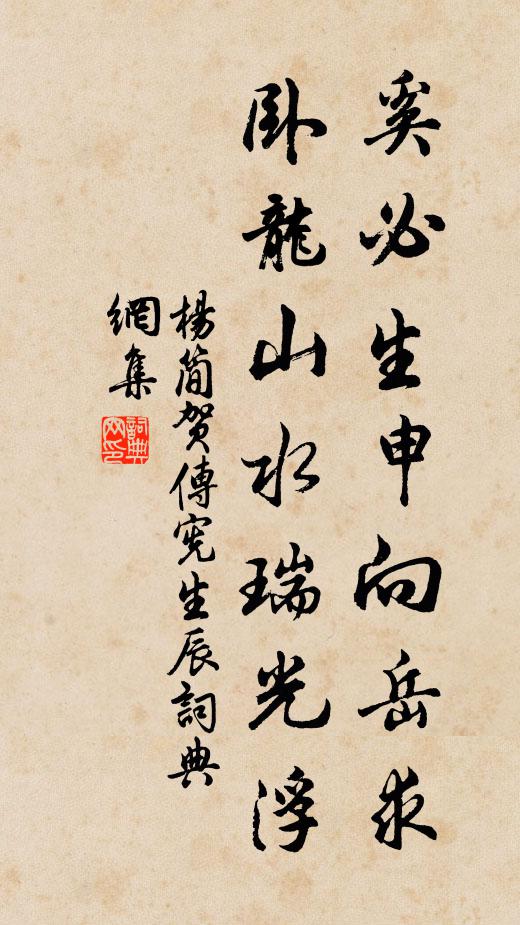 奚必生申向岳求
卧龍山水瑞光浮
楊簡賀傅憲生辰詞典
網集
詞典
网印